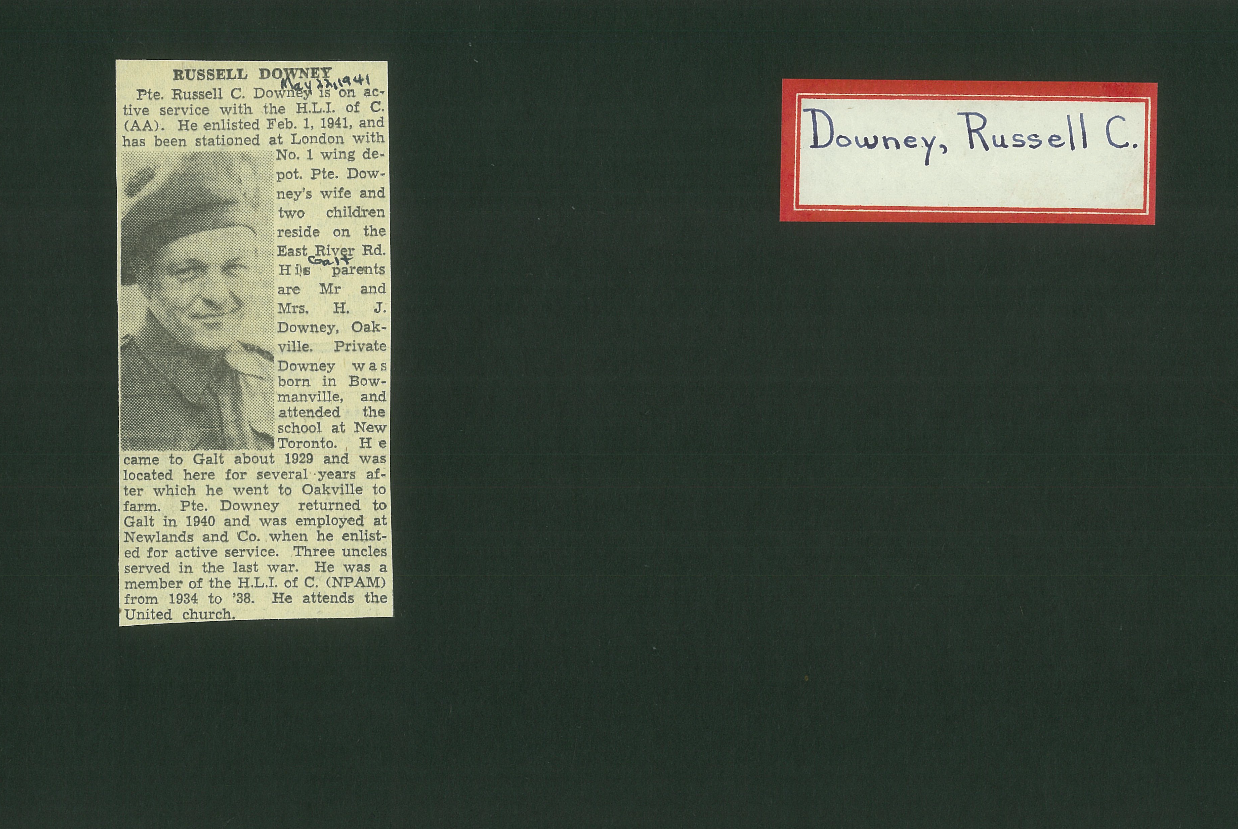 RUSSELL DOWNEY
May 22, 1941
Pte. Russell C. Downey is on ac-
tive service with the H.L.I. of C.
(AA). He enlisted Feb. 1, 1941, and
has been stationed at London with
No. 1 wing de-
pot. Pte. Dow-
ney's wife and
two children
reside on the
East River Rd.
Galt
His parents
are Mr and
Mrs. H. J.
Downey, Oak-
ville. Private
Downey was
born in Bow-
manville, and
attended the
school at New
Toronto. He
came to Galt about 1929 and was
located here for several years af-
ter which he went to Oakville to
farm. Pte. Downey returned to
Galt in 1940 and was employed at
Newlands and Co. when he enlist-
ed for active service. Three uncles
served in the last war. He was a
member of the H.L.I. of C. (NPAM)
from 1934 to '38. He attends the
United church.
Downey, Russell C.